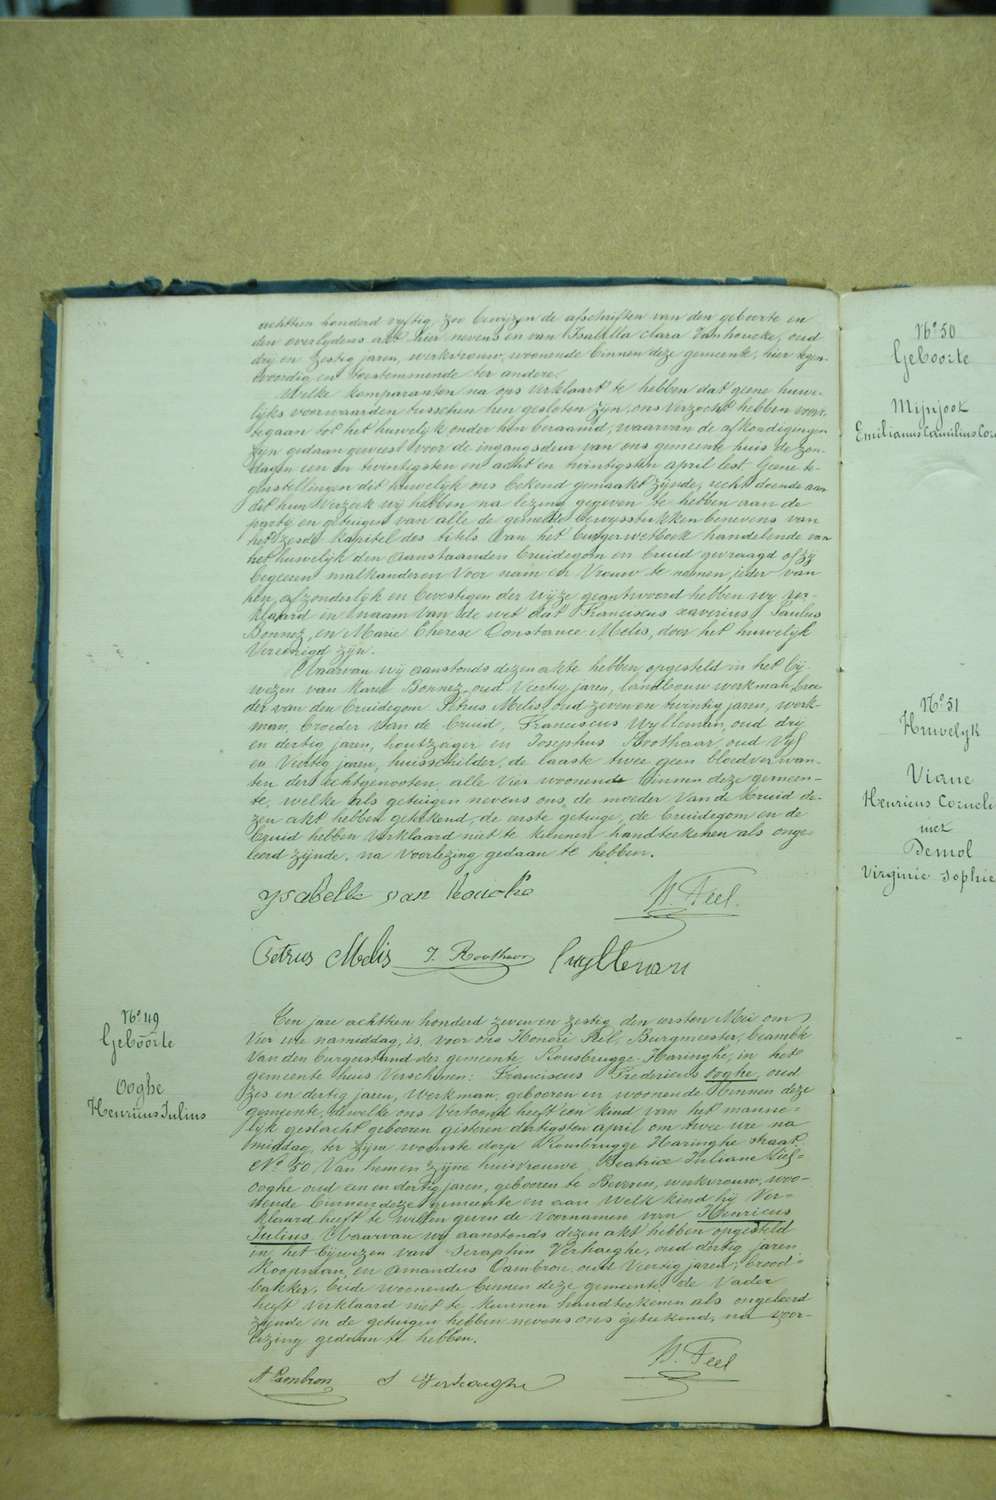 achttien honderd vyftig zoo bewyzen de afschriften van den geboorte en
den overlydens akt hier nevens en van Isabella Clara Vanhoucke, oud
dry en zestig jaren, werkvrouw, woonende binnen deze gemeente, hier tegen-
woordig en toestemmende ter andere.
Welke komparanten na ons verklaart te hebben dat geene huwe-
lyks voorwaarden tusschen hen gesloten zyn, ons verzocht hebben voor-
tegaan tot het huwelyk onder hen beraamd, waarvan de afkondigingen
zyn gedaan geweest voor de ingangsdeur van ons gemeente huis de zon-
dagen een en twintigsten en acht en twintigsten april lest. Geene te-
genstellingen dit huwelyk ons bekend gemaakt zynde, recht doende aan
dit hun verzoek wy hebben na lezing gegeven te hebben aan de
party en getuigen van alle de gemelde bewysstukken benevens van
het zesde kapitel des titels van het burgerwetboek handelende van
het huwelyk den aanstaanden bruidegom en bruid gevraagd of zy
begeeren malkanderen voor man en vrouw te nemen, ieder van
hen, afzonderlyk en bevestigen der wyze geantwoord hebben wy ver-
klaard in naam van de wet dat Franciscus xaverius Paulus
Bonnez, en Marie Therese Constance Melis, door het huwelyk
Vereenigd zyn.
Waarvan wy aanstonds dezen akte hebben opgesteld in het by-
wezen van Karel Bonnez, oud Veertig jaren, landbouw werkman, broe
der van den bruidegom Petrus Melis, oud zeven en twintig jaren, werk-
man, broeder van de bruid, Franciscus Wylleman, oud dry
en dertig jaren, houtzager en Josephus Roothaar, oud Vyf
en Veertig jaren, huisschilder, de laaste twee geen bloedverwan-
ten der echtgenooten, alle vier woonende binnen deze gemeen-
te, welke als getuigen nevens ons, de moeder van de bruid de-
zen akt hebben getekend, de eerste getuige, de bruidegom en de
bruid hebben verklaard niet te kunnen handteekenen als onge-
leerd zynde, na voorlezing gedaan te hebben.
ysabelle van houcke
H. Feel
Petrus Melis J. Roothaar
Wylleman
No 49
Geboorte
Ooghe
Henricus Julius
Ten jare achttien honderd zeven en zestig den eersten Mei om
Vier ure namiddag, is voor ons Honoré Feel, Burgmeester, beambte
Van den burgerstand der gemeente Rousbrugge-Haringhe, in het
gemeente huis verschenen: Franciscus Fredericus Ooghe, oud
zes en dertig jaren, Werkman, geboren en woonende binnen deze
gemeente, dewelke ons Vertoond heeft een kind van het manne-
lyk geslacht geboren gisteren dertigsten april om twee ure na
middag, ter zyner woonste dorp Rousbrugge Haringhe straat
No 50, Van hem en zyne huisvrouwe Beatrice Juliane
ooghe oud een en dertig jaren, geboren te Beveren, werkvrouw, woo-
nende binnen deze gemeente en aan welk kind hy ver-
klaard heeft te willen geven de voornamen van Henricus
Julius. Waarvan wy aanstonds dezen akt hebben opgesteld
in het bywezen van Seraphin Verhaeghe, oud dertig jaren,
Koopman, en Amandus Cambron, oud Veertig jaren, brood-
bakker, beide woonende binnen deze gemeente, de Vader
heeft verklaard niet te kunnen handteekenen als ongeleerd
zynde en de getuigen hebben nevens ons geteekend, na voor-
lezing gedaan te hebben.
H. Feel
A Cambron S Verhaeghe
No 50
Geboorte
Mijnjoot
Emilianus Camilius Cor
No 51
Huwelyk
Viane
Henricus Corneli
met
Demol
Virginie Sophie